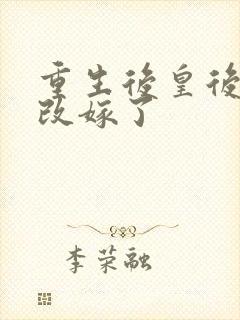 重生後皇後
改嫁了
李荣融